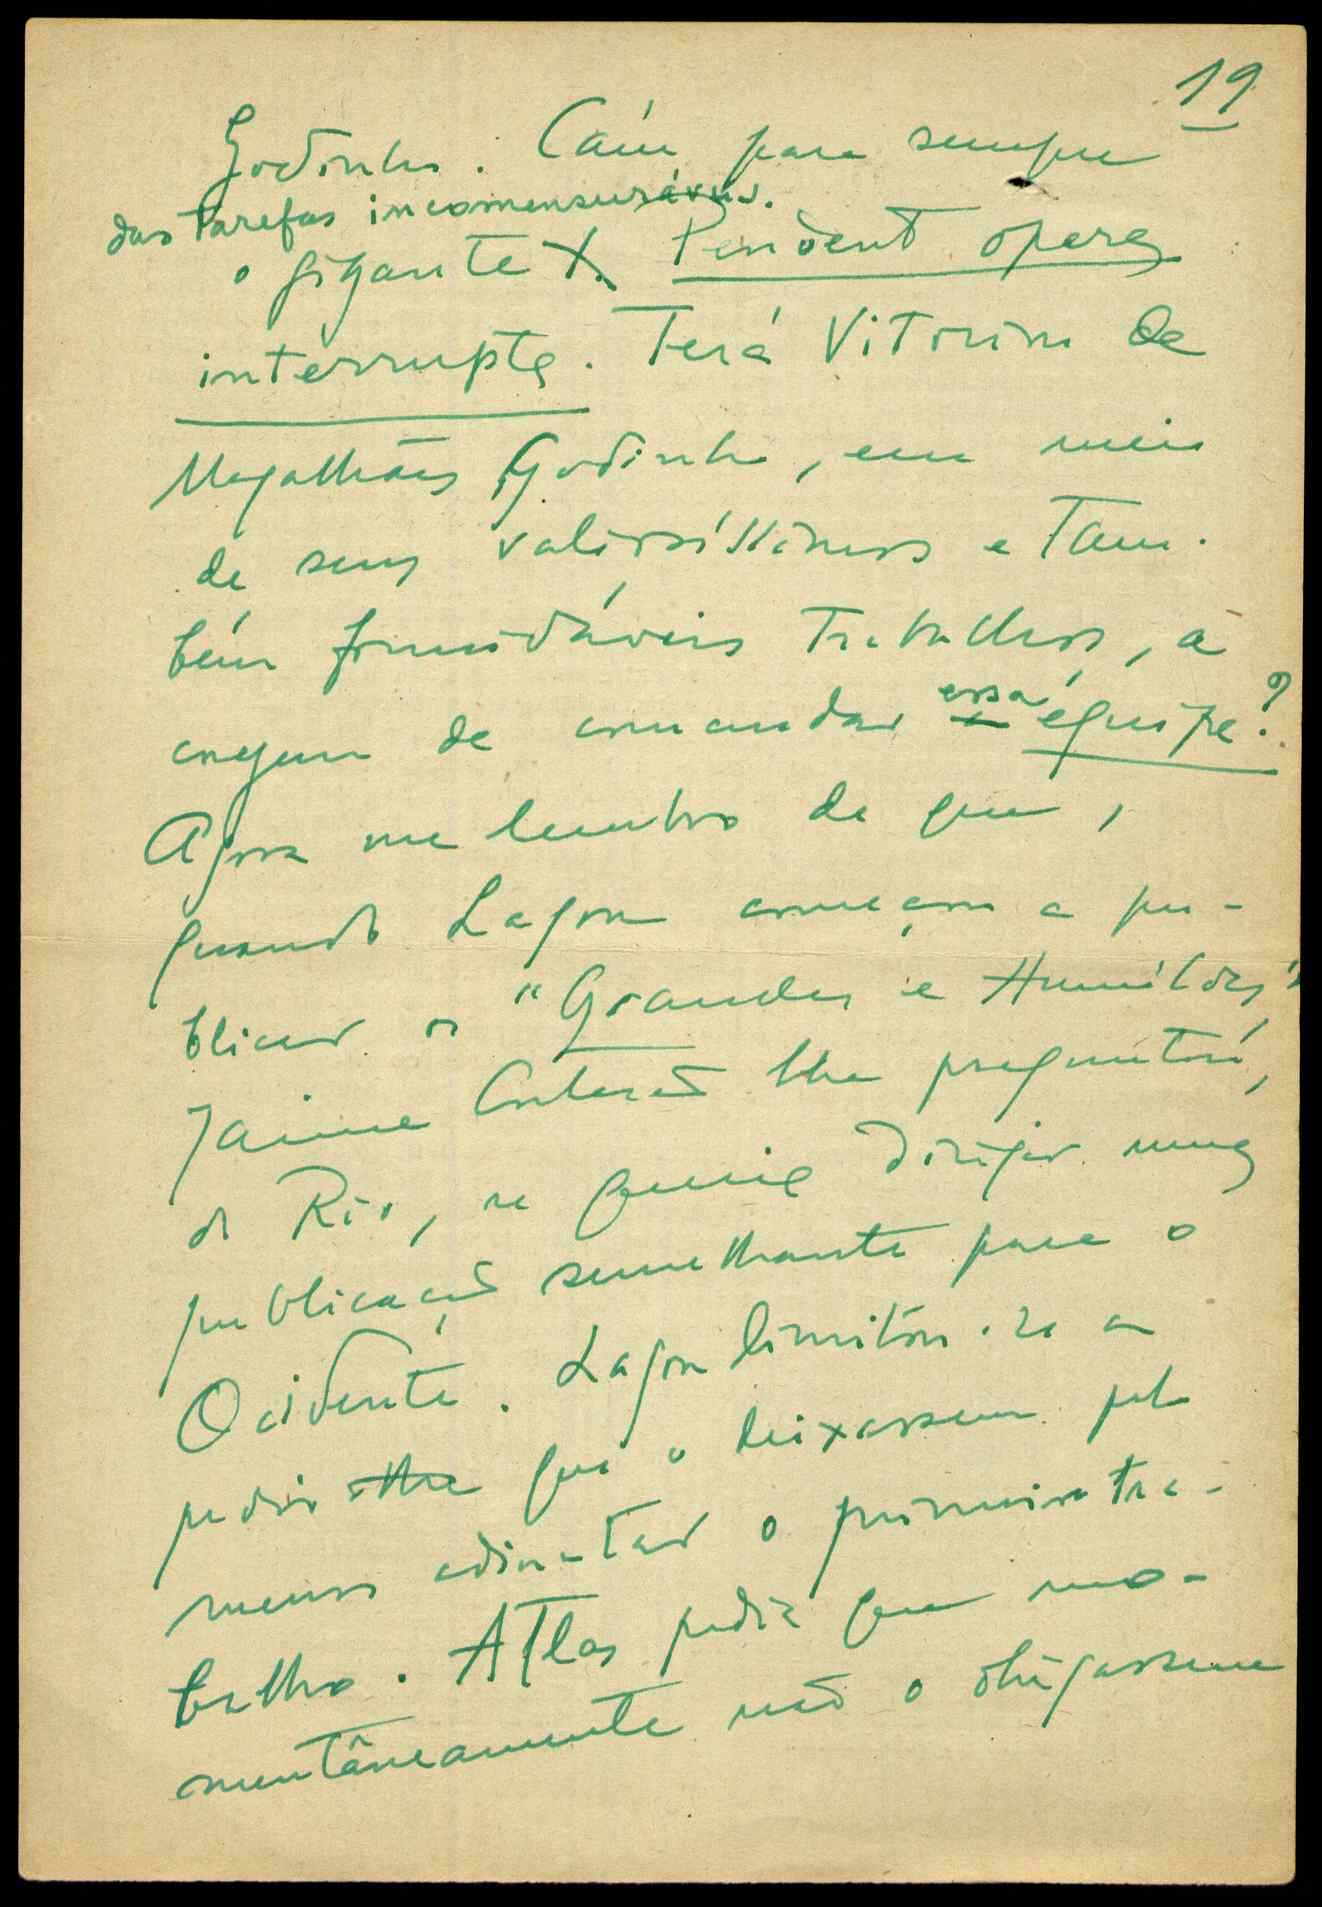 19
Godinho. Caíu para sempre
das tarefas incomensuráveis.
o gigante X. Pendent opera
interrupta. Terá Vitorino de
Magalhães Godinho, em meio
de seus valiosíssimos e tam-
bém formidáveis trabalhos, a
coragem de comandar essa équipe?
Agora me lembro de que,
quando Lagoa começou a pu-
blicar os "Grandes e Humildes",
Jaime Cortesão lhe preguntou,
do Rio, se queria dirigir uma
publicação semelhante para o
Ocidente. Lagoa limitou-se a
pedir lhe que o deixassem pelo
menos adiantar o primeiro tra-
balho. Atlas pedia que mo-
mentâneamente não o obrigassem